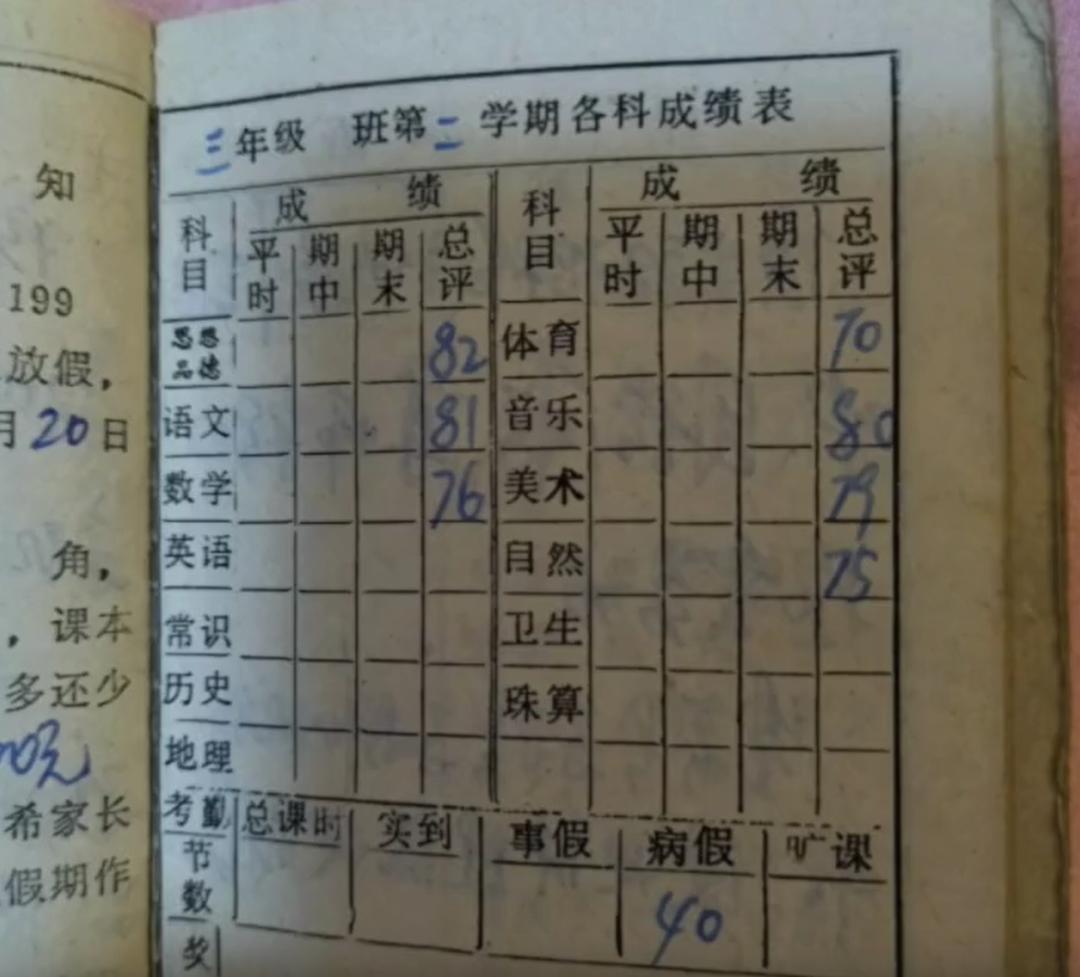 知
199
放假，
月20日
角，
，课本
多还少
00元
希家长
假期作
三年级 班第二学期各科成绩表
科目 成绩 科目 成绩
平时 期中 期末 总评 平时 期中 期末 总评
思想品德 82 体育 70
语文 81 音乐 80
数学 76 美术 79
英语 自然 75
常识 卫生
历史 珠算
地理
考勤 总课时 实到 事假 病假 旷课
节数 40
奖